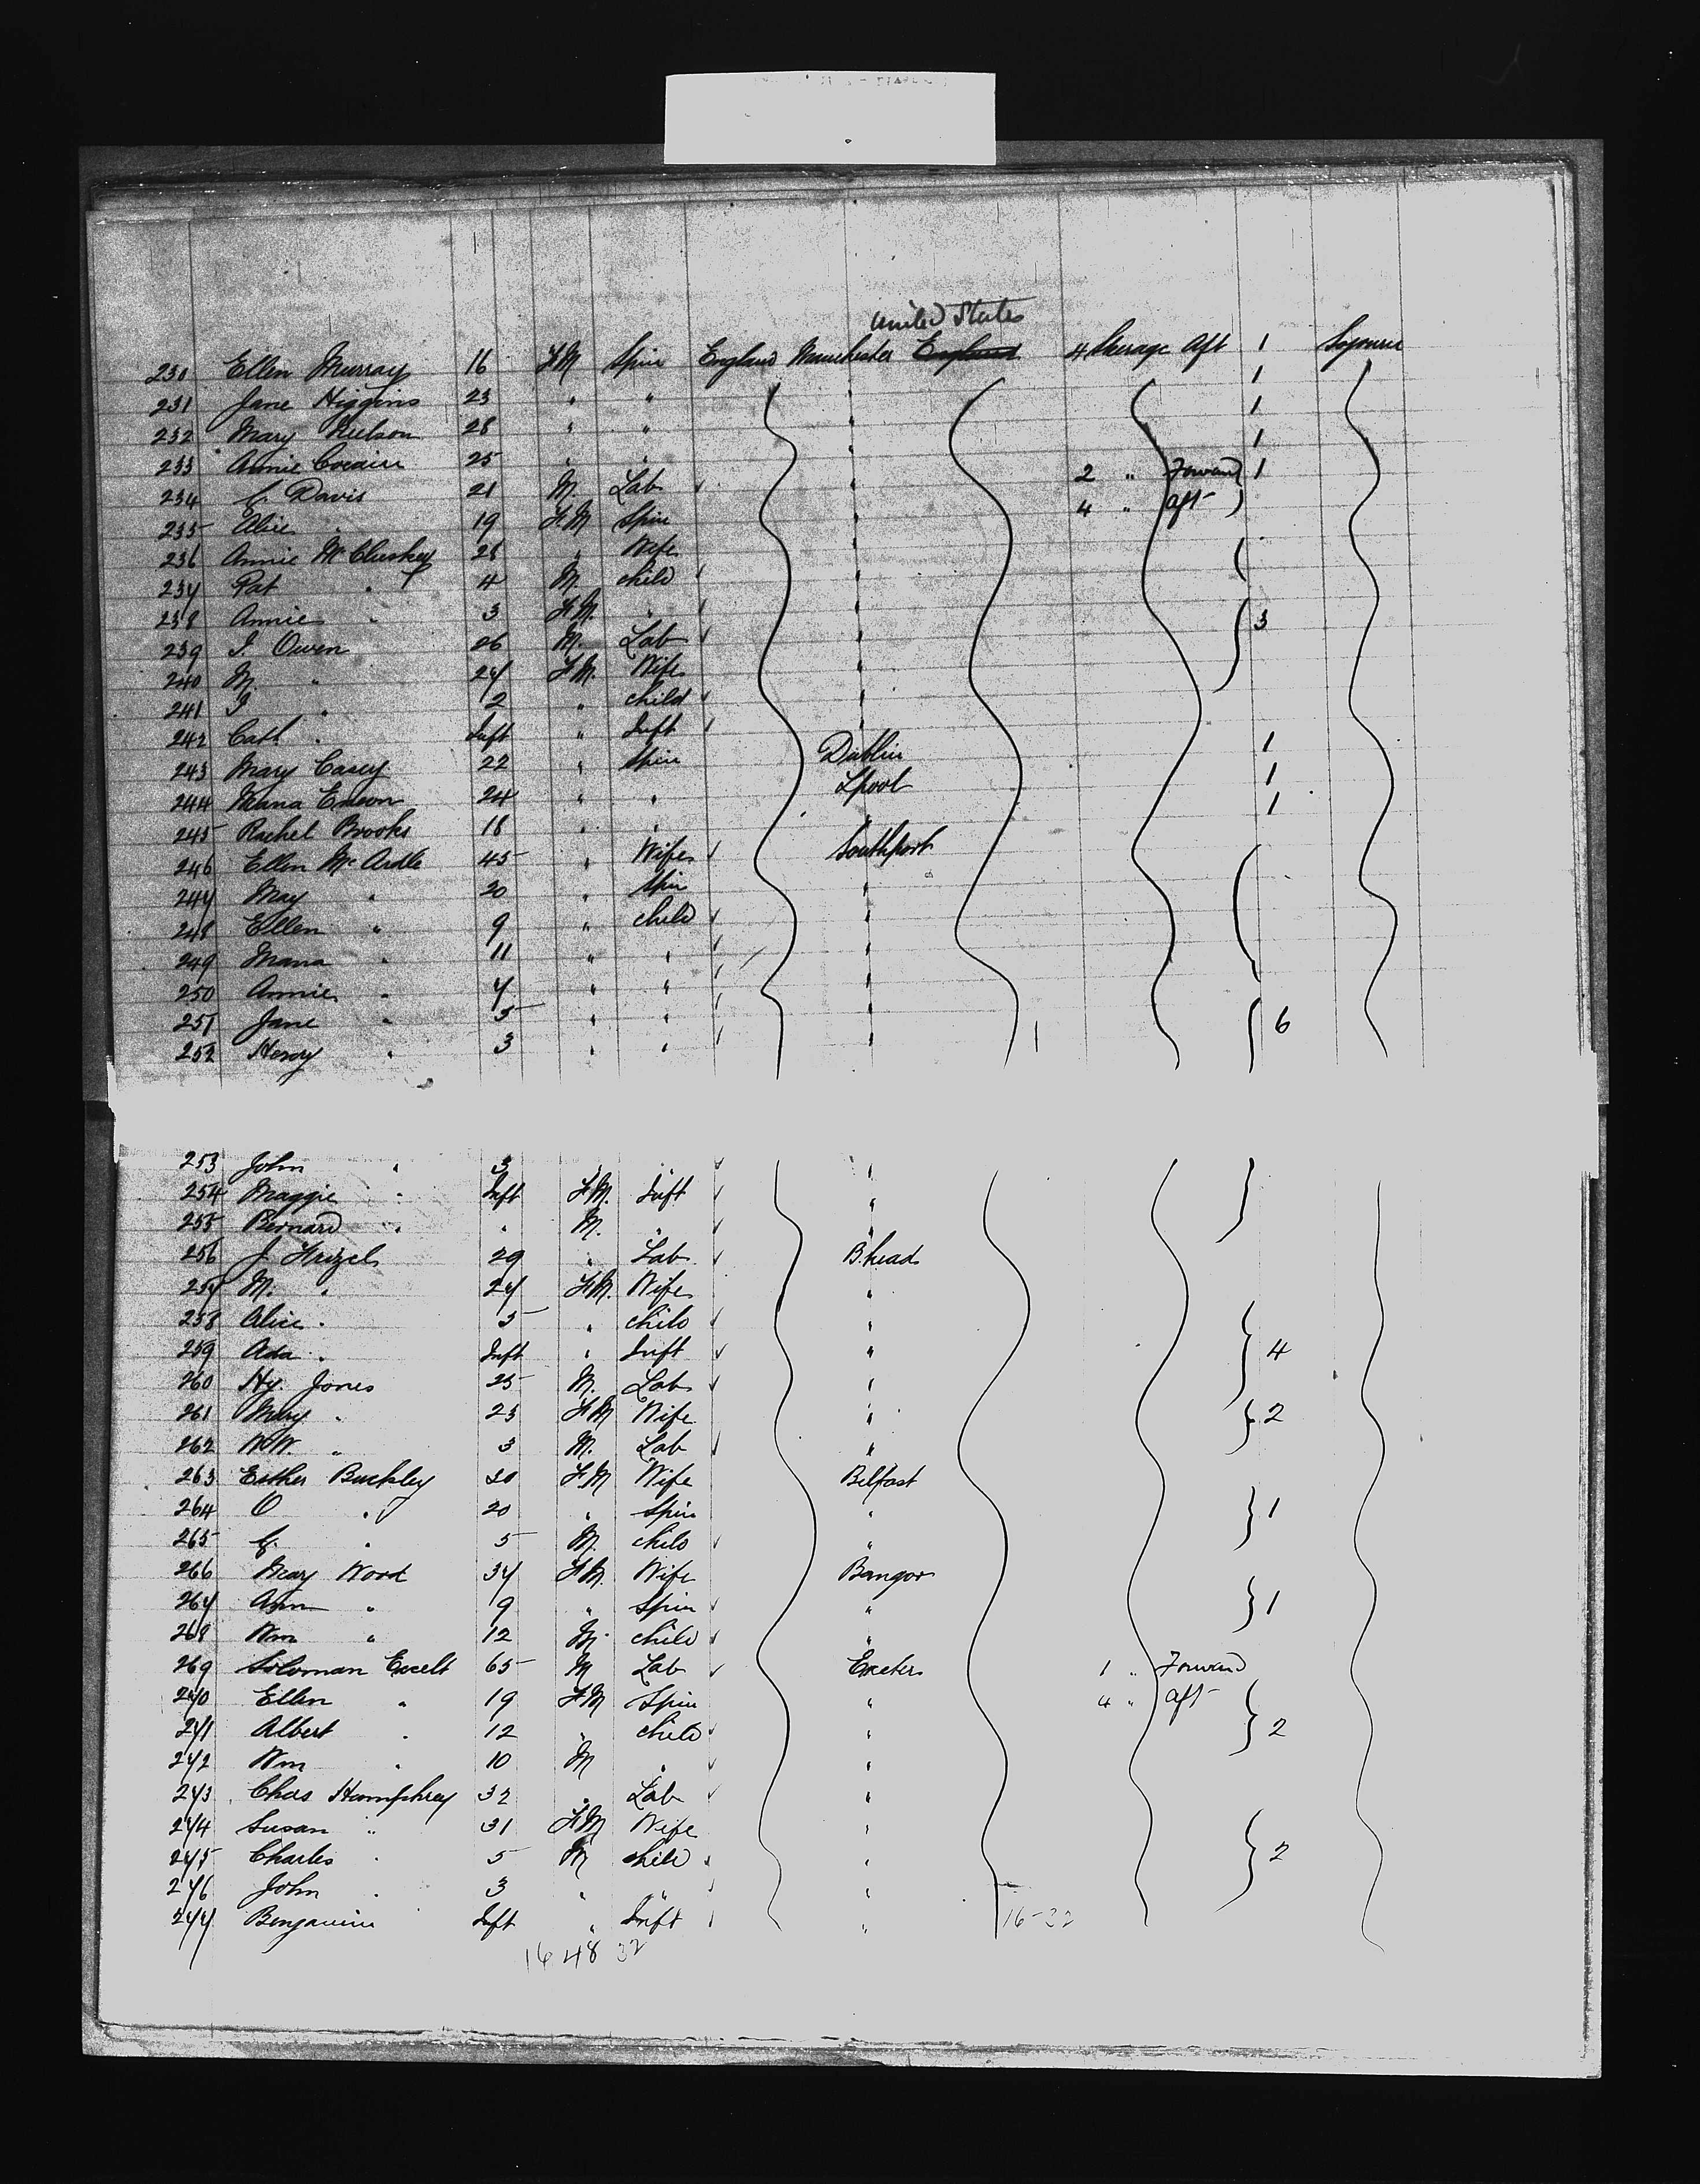 United States
230 Ellen Murray 16 FM Spin England Manchester England 4 Steerage Aft 1 Sojourn
231 Jane Higgins 23 " " " 1
232 Mary Neilson 28 " " " 1
233 Annie Cocain 25 " " " 1
234 C. Davis 21 M. Lab " 2 " Forward 1
235 Alice " 19 FM Spin " 4 " Aft
236 Annie McCluskey 28 " Wife "
237 Pat " 4 M. child "
238 Annie " 3 FM. " " 3
239 J. Owen 26 M. Lab "
240 M. " 27 FM. Wife "
241 J " 2 " child "
242 Cath " Inft " Inft
243 Mary Casey 22 " Spin Dublin 1
244 Maria 24 " " Lpool 1
245 Rachel Brooks 18 " " " 1
246 Ellen McArdle 45 " Wife Southport
247 May " 20 " Spin "
248 Ellen " 9 " child "
249 Maria " 11 " " "
250 Annie " 7 " " "
251 Jane " 5 " " " 6
252 Henry " 3 " " "
253 John " 3 " "
254 Maggie " Inft FM. Inft "
255 Bernard " " M. " "
256 J Frizel 29 " Lab B.head
257 M. " 27 FM. Wife "
258 Alice " 5 " child "
259 Ada " Inft " Inft " 4
260 Hy. Jones 25 M. Lab "
261 Mary " 23 FM Wife " 2
262 W.W. " 3 M. Lab "
263 Esther Buckley 20 FM Wife Belfast
264 O " 20 " Spin " 1
265 " 5 M. child "
266 Mary Wood 37 FM. Wife Bangor
267 Ann " 9 " Spin " 1
268 Wm " 12 M. child "
269 Soloman 65 M Lab Exeter 1 " Forward
270 Ellen " 19 FM Spin " 4 " Aft
271 Albert " 12 " child " 2
272 Wm " 10 M " "
273 Chas Humphrey 32 " Lab "
274 Susan " 31 FM Wife "
275 Charles " 5 M child " 2
276 John " 3 " " "
277 Benjamin Inft " Inft "
16-32
16 48 32